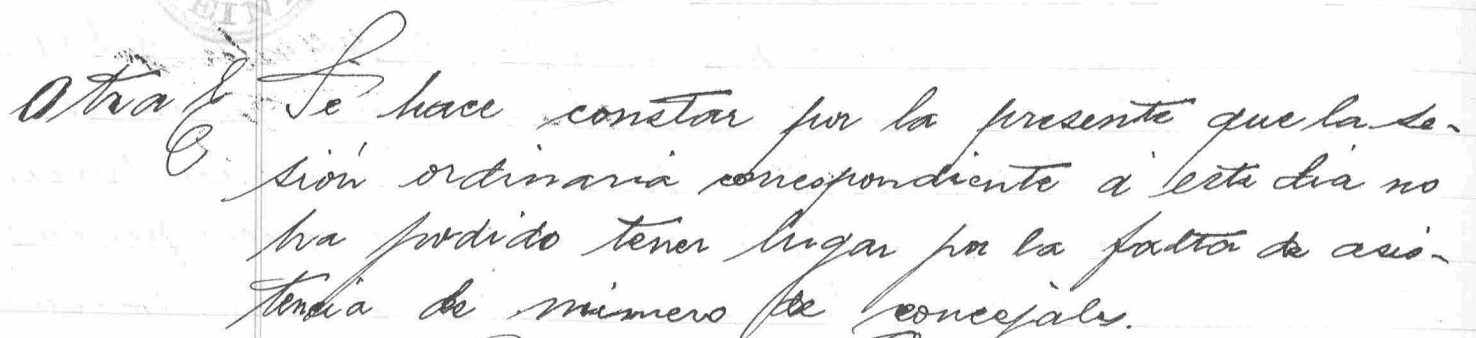 Otra Se hace constar por la presente que la se-
sión ordinaria correspondiente á este dia no
ha podido tener lugar por la falta de asis-
tencia de número de concejales.